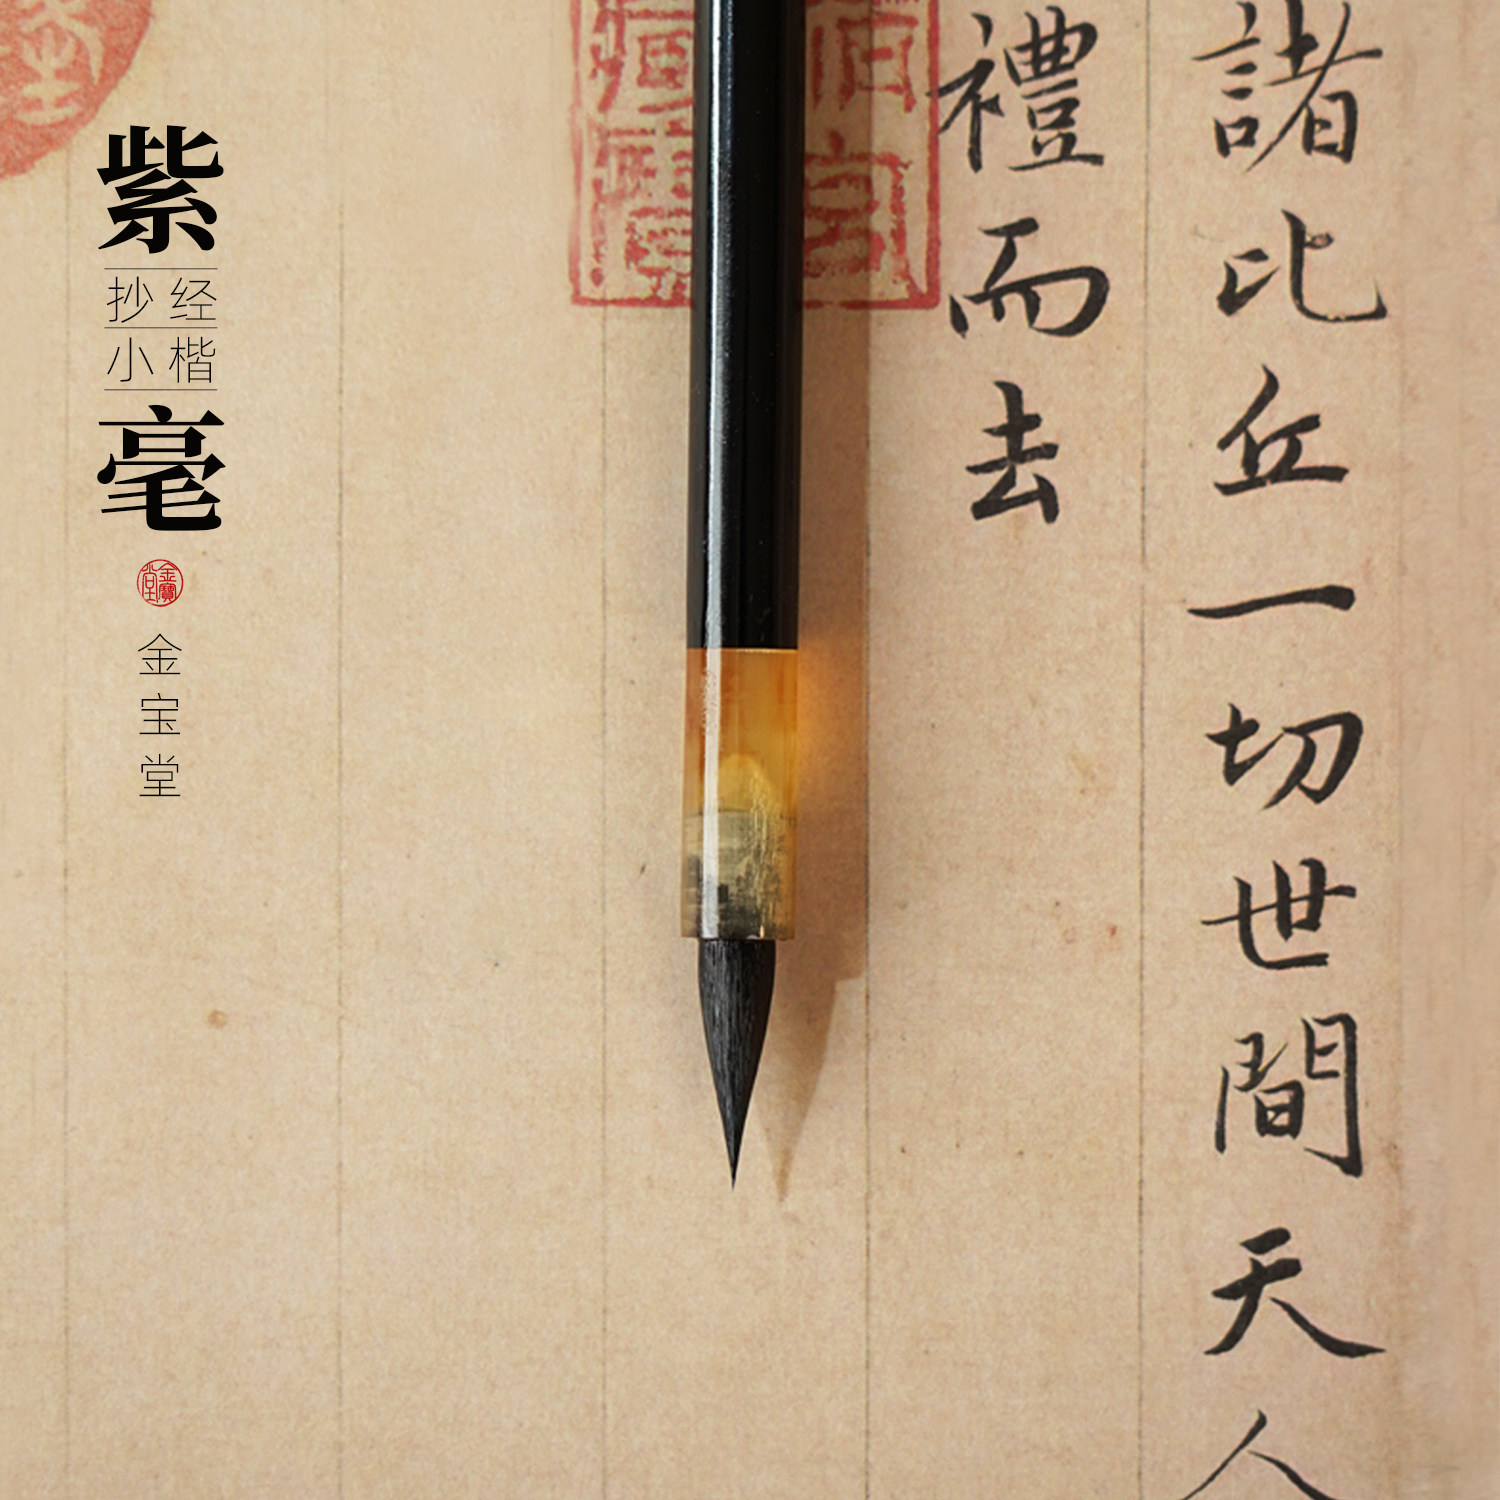 諸比丘一切世間天人
禮而去
紫
抄经
小楷
毫
金寶堂
金宝堂